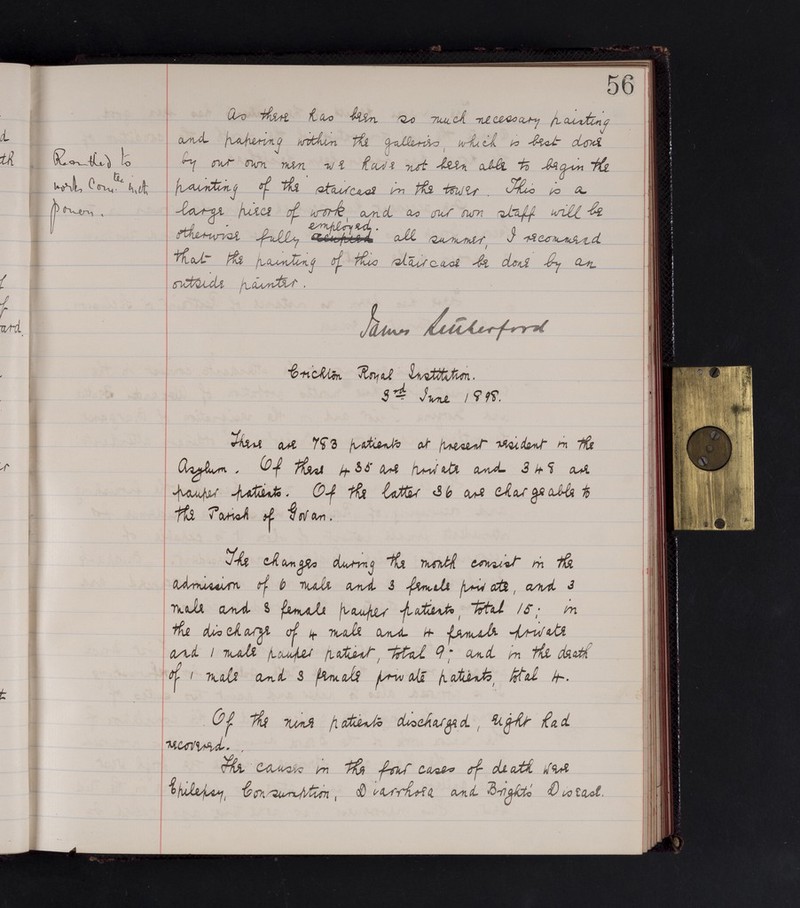 56
As there has been so much necessary painting
and papering within the galleries, which is best done
by our own men we have not been able to begin the
painting of the staircase in the tower. This is a
large piece of work, and as our own staff will be
otherwise fully occupied employed. all summer, I recommend
that the painting of this staircase be done by an
outside painter.
Remitted to
works Com.tee with
powers.
James Rutherford
Crichton Royal Institution.
3rd June 1898.
There are 783 patients at present resident in the
Asylum. Of these 435 are private and 348 are
pauper patients. Of the latter 36 are chargeable to
the Parish of Govan.
The changes during the month consist in the
admission of 6 male and 3 female private, and 3
male and 3 female pauper patients, total 15; in
the discharge of 4 male and 4 female private
and 1 male pauper patient, total 9; and in the death
of 1 male and 3 female private patients, total 4.
Of the nine patients discharged, eight had
recovered.
The causes in the four cases of death were
Epilepsy, Consumption, Diarrhoea and Bright's Disease.